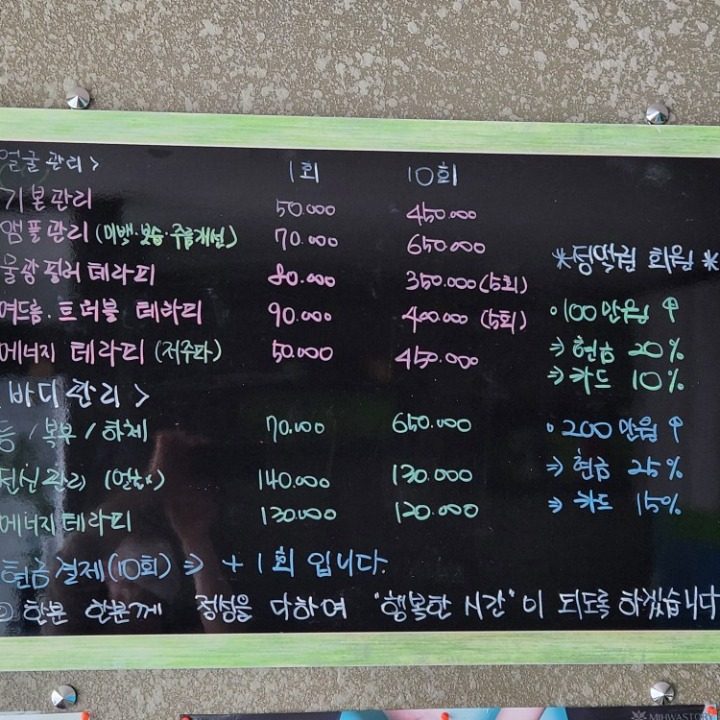 얼굴관리> 1회 10회
기본관리 50.000 450.000
앰플관리 (미백·보습·주름개선) 70.000 650.000
물광필러 테라피 80.000 350.000(5회)
여드름·트러블 테라피 90.000 400.000 (5회)
에너지 테라피 (저주파) 50.000 450.000
바디관리>
등/복부/하체 70.000 650.000
전신관리 140.000 130.000
에너지테라피 130.000 120.000
현금결제(10회) ⇒ +1회 입니다.
한분 한분께 정성을 다하여 "행복한 시간"이 되도록 하겠습니다
*정액권 회원*
100만원 ↑
⇒ 현금 20%
⇒ 카드 10%
200만원 ↑
⇒ 현금 25%
⇒ 카드 15%
MIHWASTORY